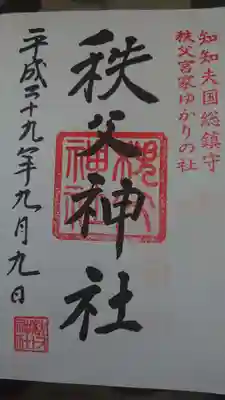 知知夫国総鎮守
秩父宮家ゆかりの社
秩父神社
平成二十九年九月九日
秩父神社